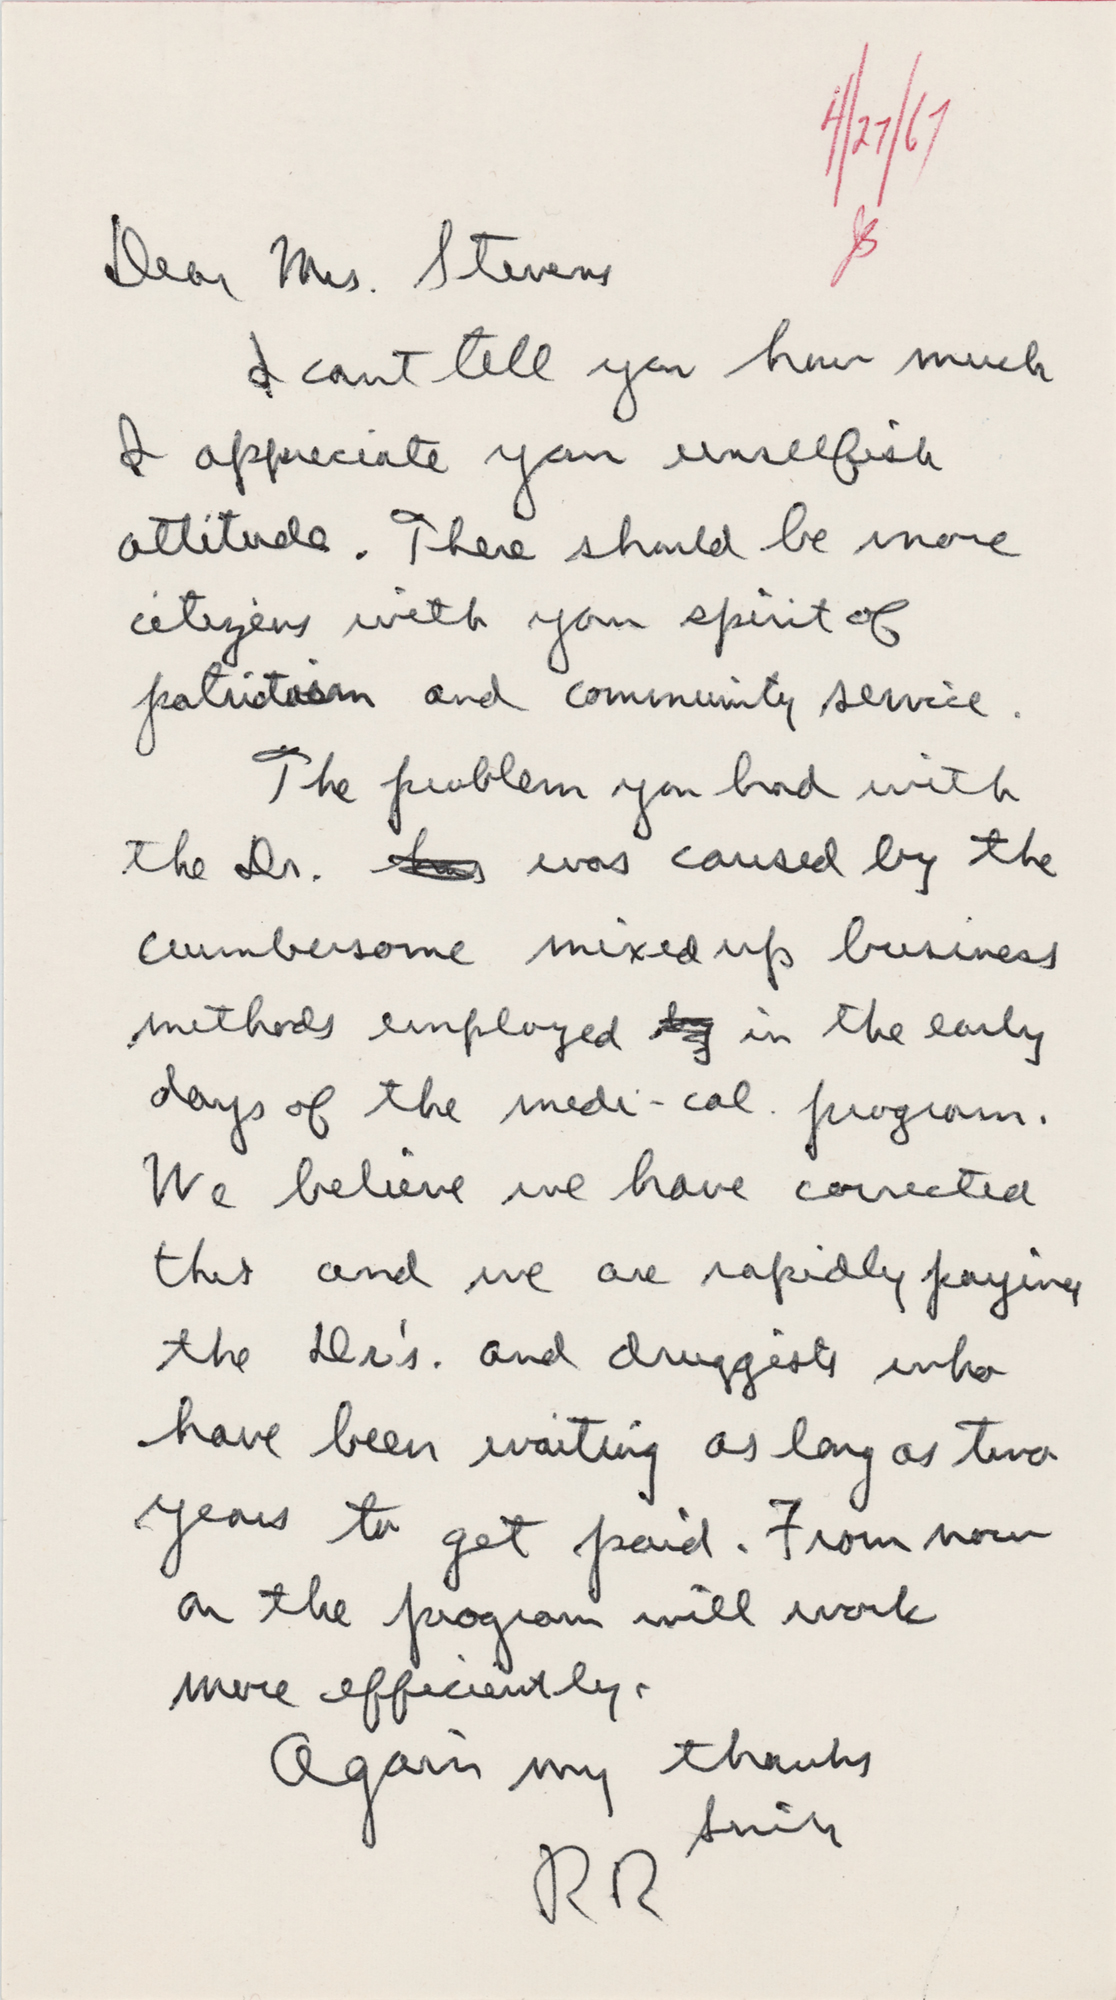 4/27/67
JB
Dear Mrs. Stevens
I can't tell you how much
I appreciate your unselfish
attitude. There should be more
citizens with your spirit of
patriotism and community service.
The problem you had with
the Dr. was caused by the
cumbersome mixed up business
methods employed by in the early
days of the medi-cal. program.
We believe we have corrected
this and we are rapidly paying
the Dr's. and druggists who
have been waiting as long as two
years to get paid. From now
on the program will work
more efficiently.
Again my thanks
RR